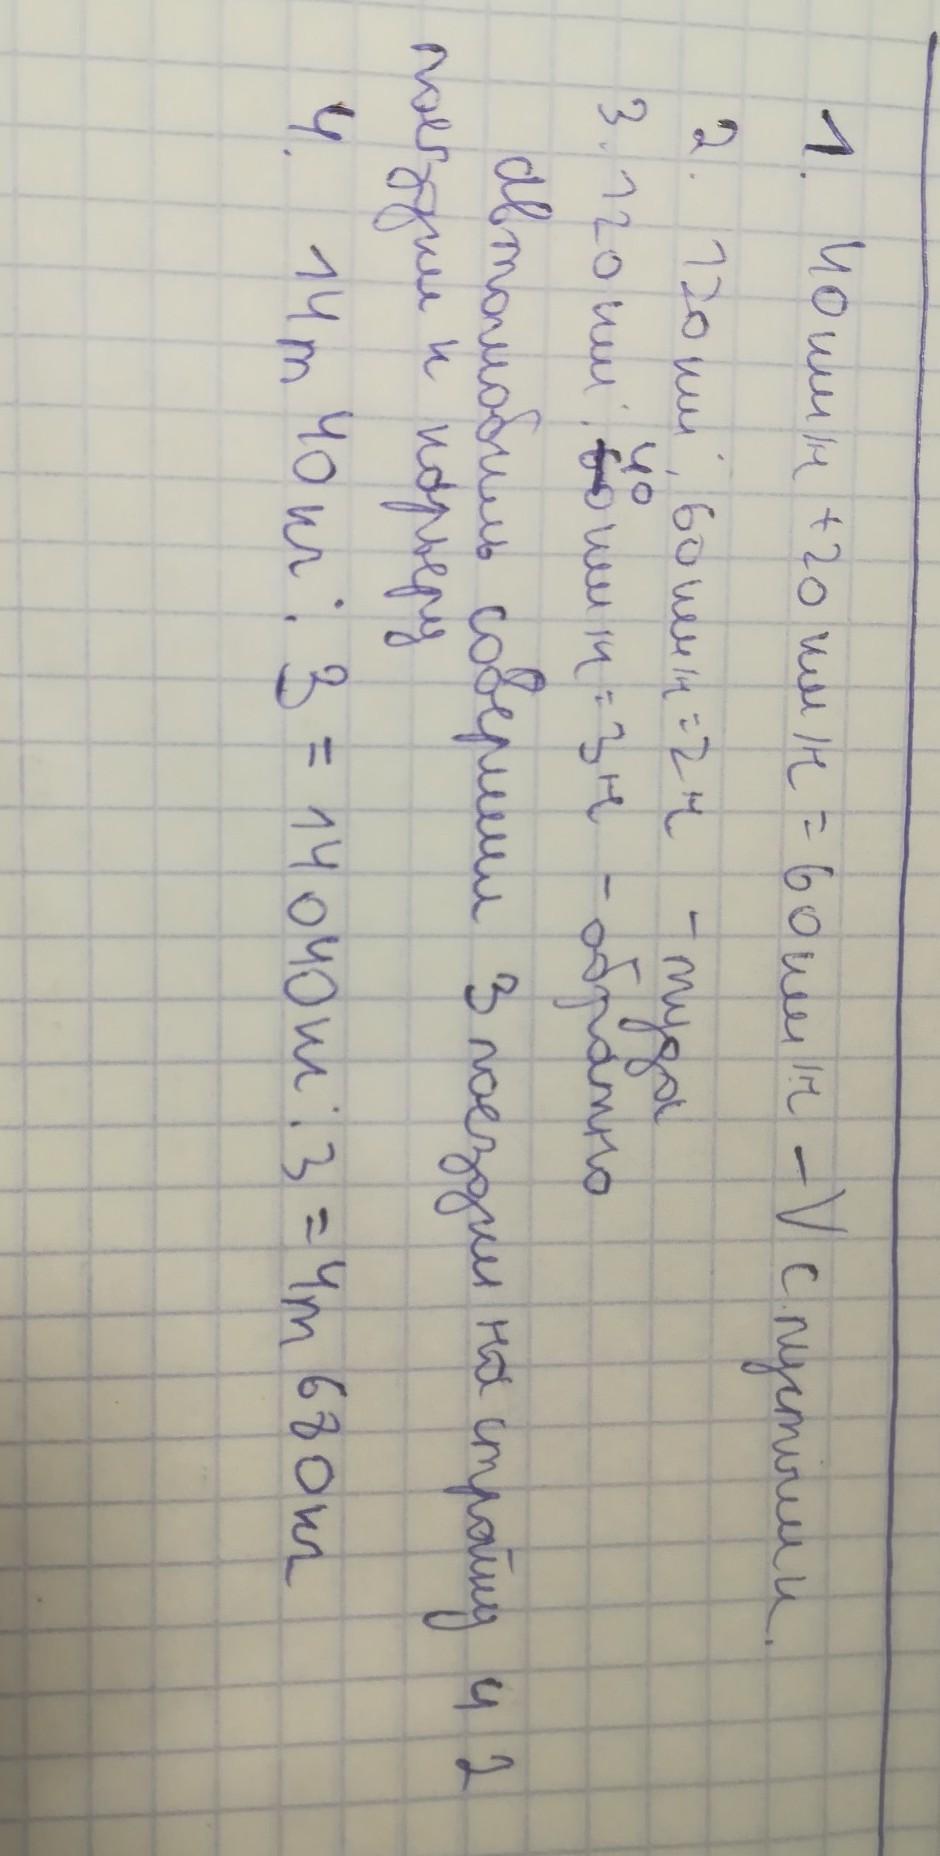 1. 40км/ч + 20км/ч = 60км/ч – V с пустыми.
2. 120км : 60км/ч = 2ч – туда
3. 120км : 40км/ч = 3ч – обратно
автомобиль совершил 3 поездки на стройку и 2
поездки к карьеру
4. 14т 40кг : 3 = 14040кг : 3 = 4т 680кг